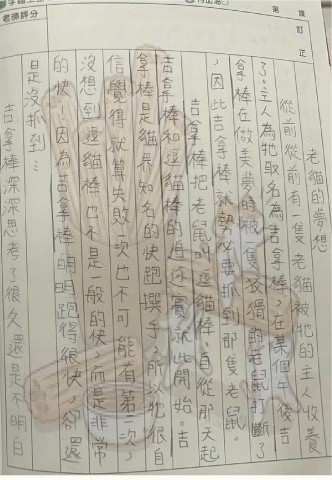 第 課
訂正
老師評分
老貓的夢想
從前從前有一隻老貓被牠的主人收養
了。主人為牠取名為吉拿棒,在某個午後吉
拿棒在做美夢時被一隻狡猾的老鼠打斷了
,因此吉拿棒就勢必要抓到那隻老鼠。
吉拿棒把老鼠叫逗貓棒,自從那天起
吉拿棒和逗貓棒的追逐賽就此開始。吉
拿棒是貓界知名的快跑選手,所以牠很自
信覺得就算失敗一次也不可能有第二次,
沒想到逗貓棒也不是一般的快,而是非常
的快,因為吉拿棒明明跑得很快,卻還
是沒抓到…
吉拿棒深深思考了很久還是不明白